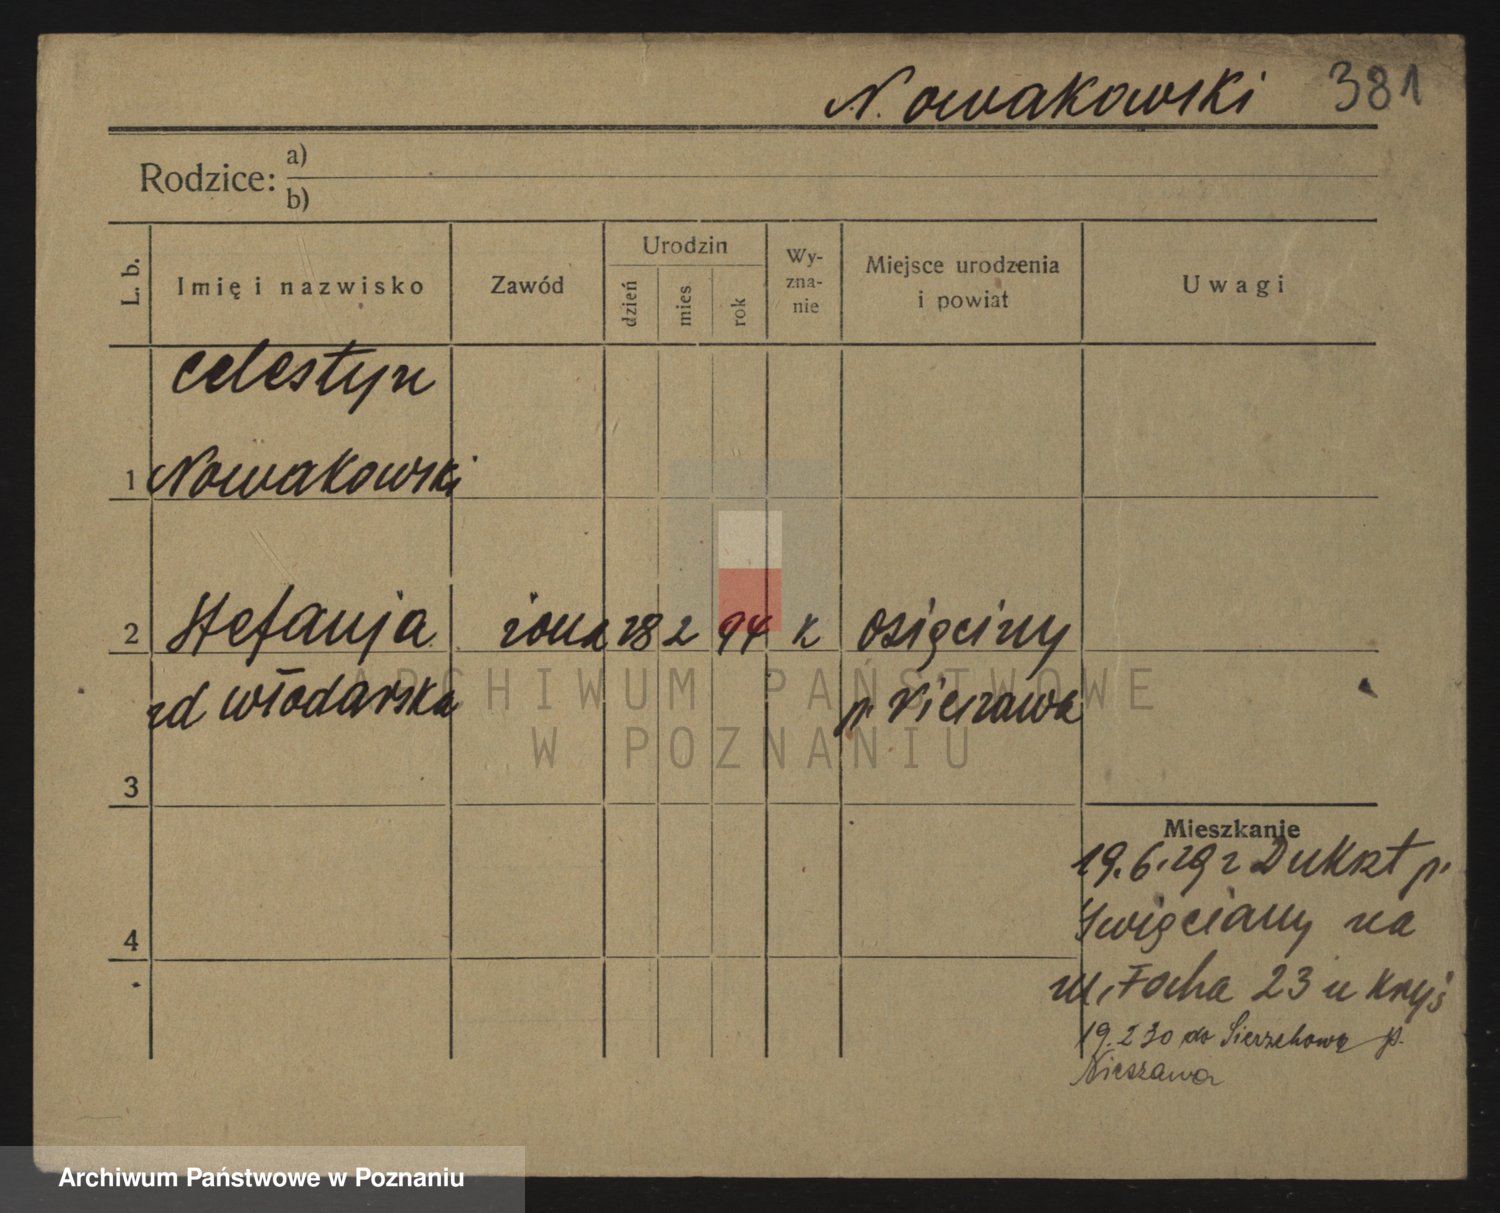 Nowakowski 381
Rodzice: a)
b)
L. b. Imię i nazwisko Zawód Urodzin dzień mies rok Wy-zna-nie Miejsce urodzenia i powiat Uwagi
Celestyn
1 Nowakowski
2 Stefanja żona 28 2 94 k Osięciny
zd Włodarska p. Nieszawa
3
Mieszkanie
19.6.29 z Dukszt p.
4 Święciany na
ul. Focha 23 u Kryś
19.2 30 do Sierzchowa p.
Nieszawa
ARCHIWUM PAŃSTWOWE
W POZNANIU
Archiwum Państwowe w Poznaniu